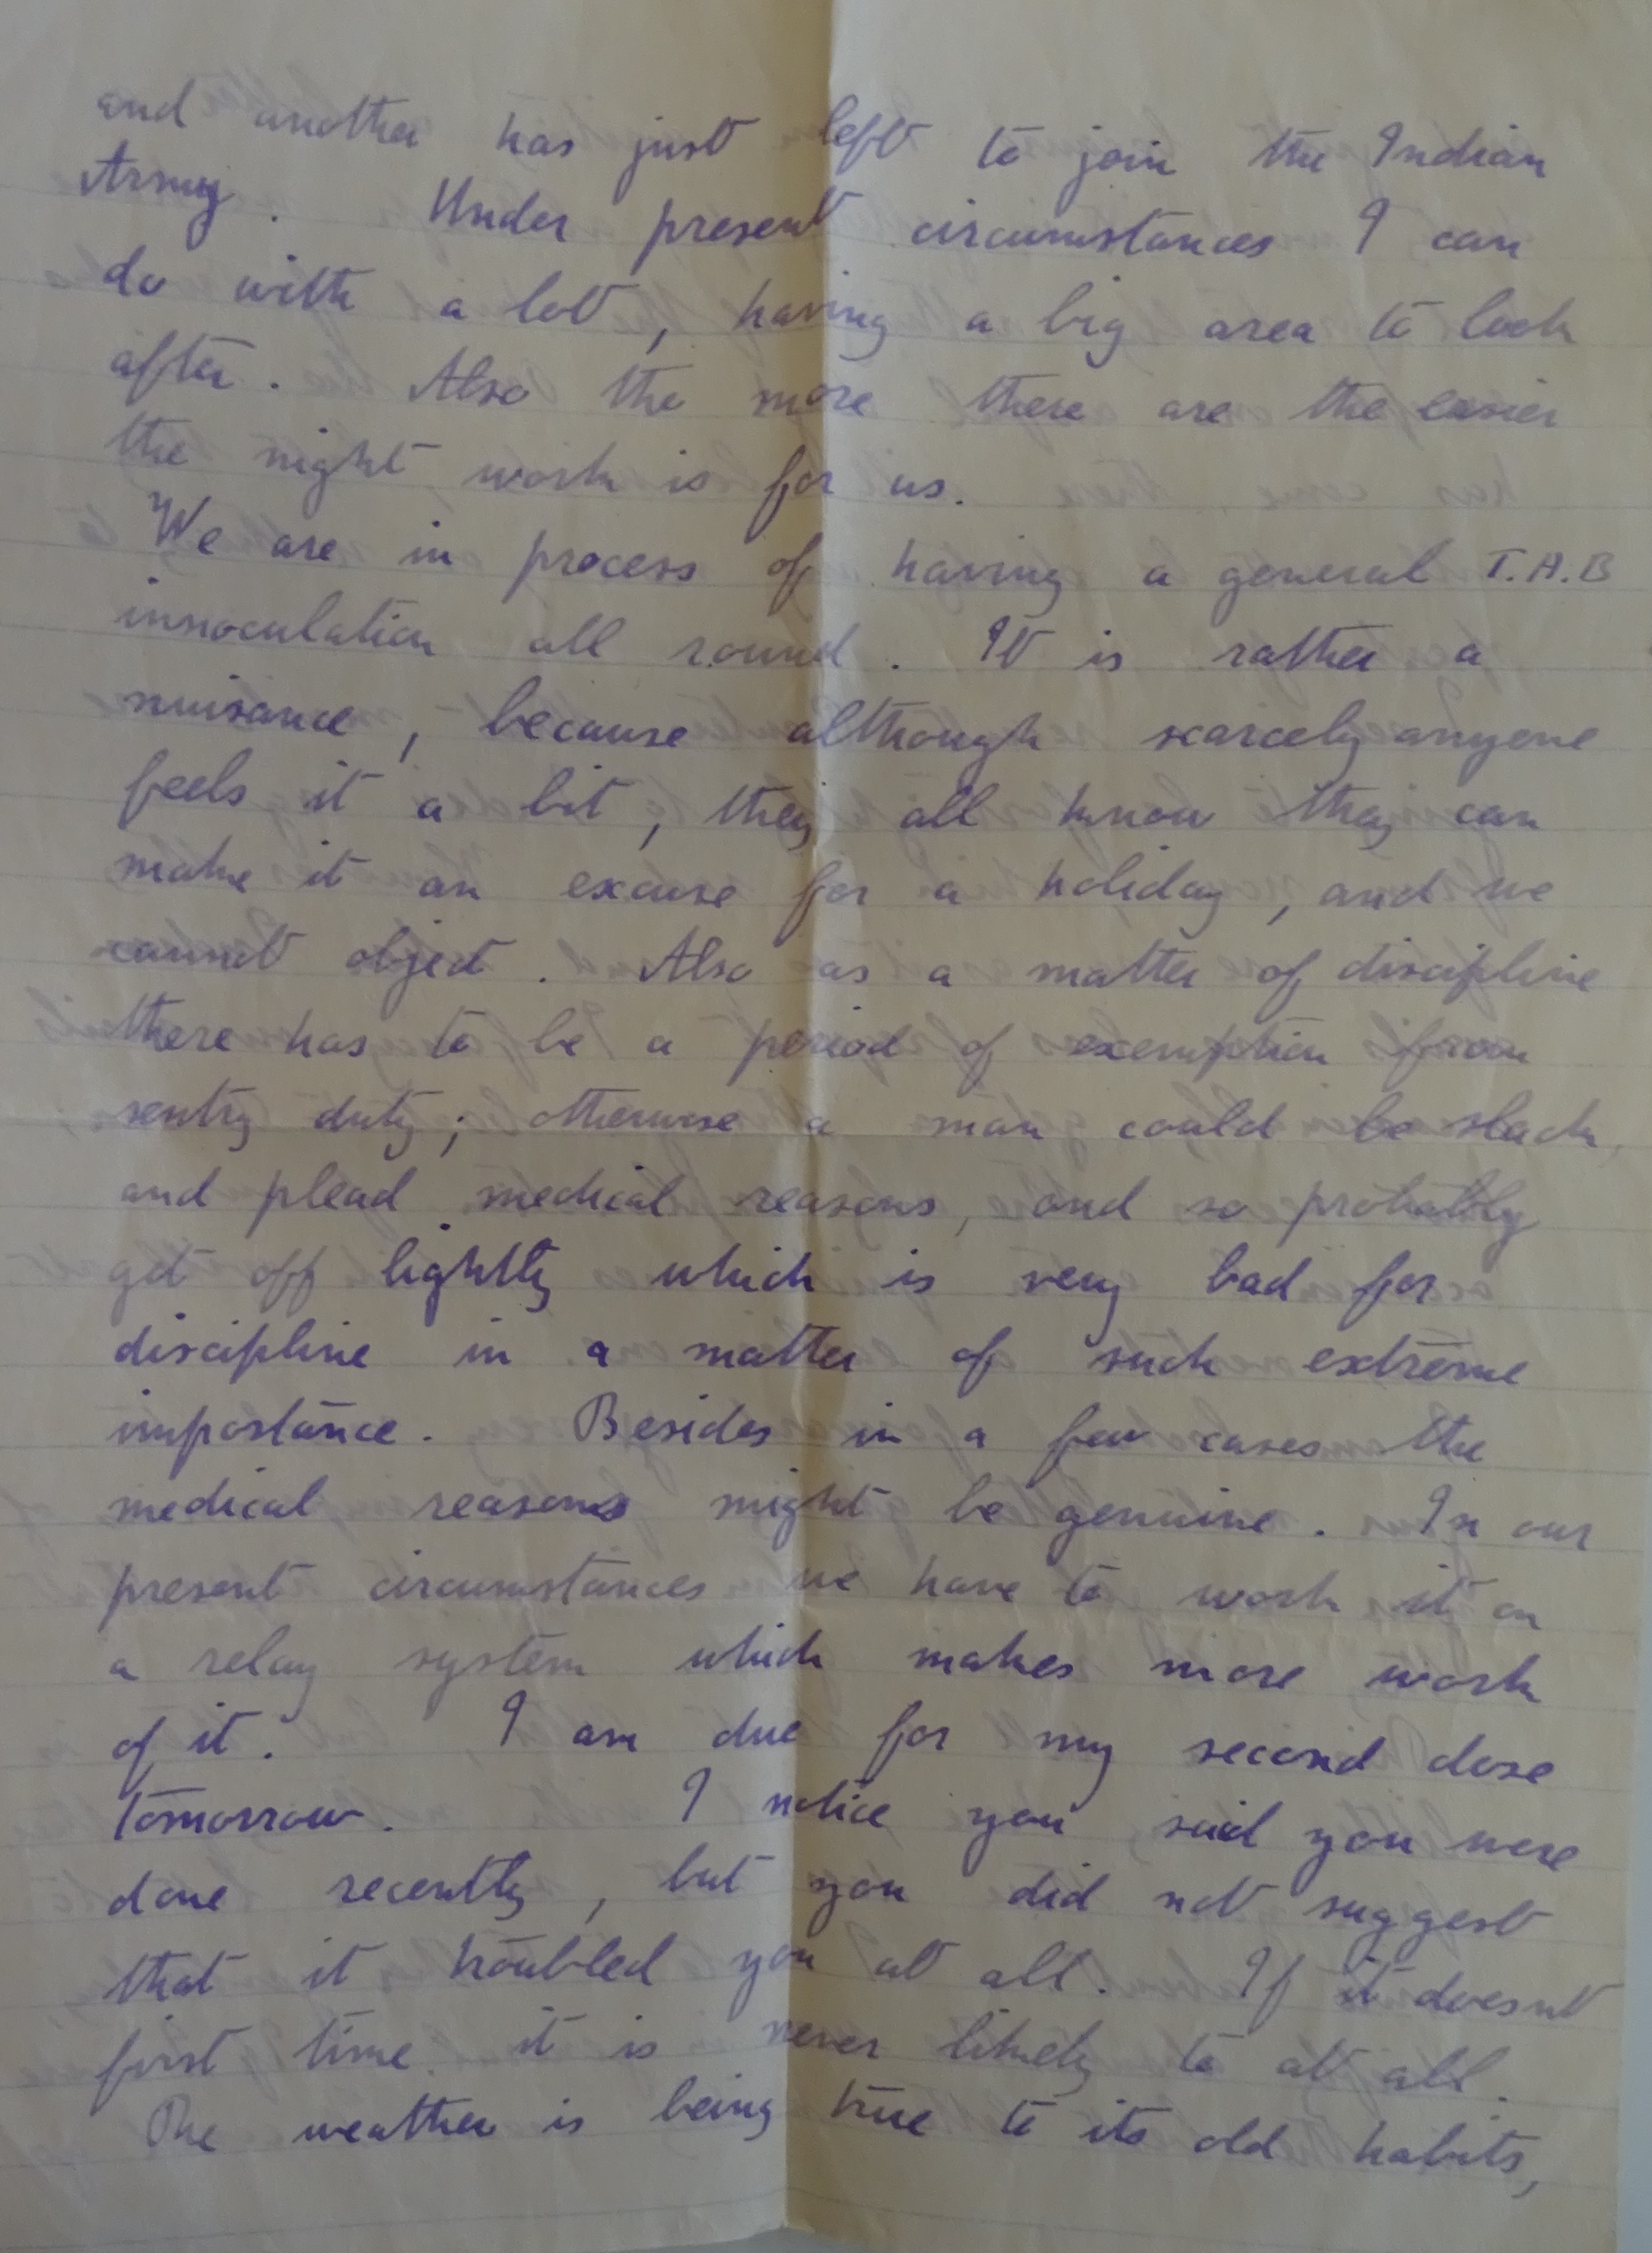 and another has just left to join the Indian
Army. Under present circumstances I can
do with a lot, having a big area to look
after. Also the more there are the easier
the night work is for us.
We are in process of having a general T.A.B
innoculation all round. It is rather a
nuisance, because although scarcely anyone
feels it a bit, they all know they can
make it an excuse for a holiday, and we
cannot object. Also as a matter of discipline
there has to be a period of exemption from
sentry duty; otherwise a man could be slack,
and plead medical reasons, and so probably
get off lightly which is very bad for
discipline in a matter of such extreme
importance. Besides in a few cases the
medical reasons might be genuine. In our
present circumstances we have to work it on
a relay system which makes more work
of it. I am due for my second dose
tomorrow. I notice you said you were
done recently, but you did not suggest
that it troubled you at all. If it doesnt
first time it is never likely to at all.
The weather is being true to its old habits,